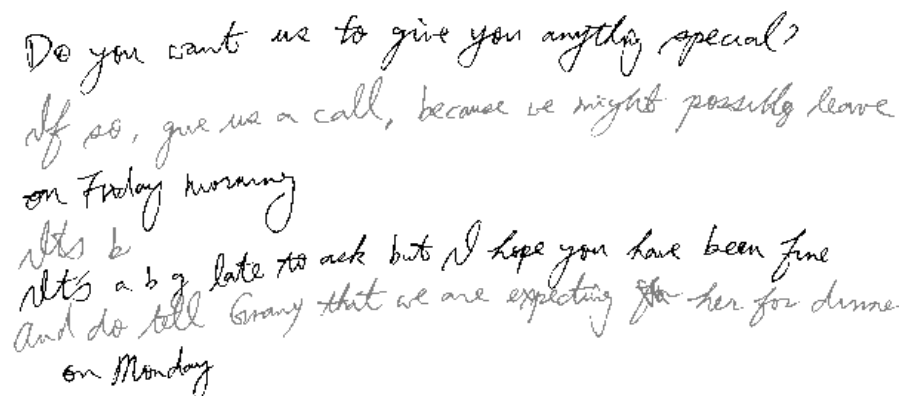 Do you want us to give you anythig special?
If so, give us a call, because we might possibly leave
on Friday morning
Its b
It's a b g late to ask but I hope you have been fine
And do tell Grany that we are expecting her for dinne
on Monday